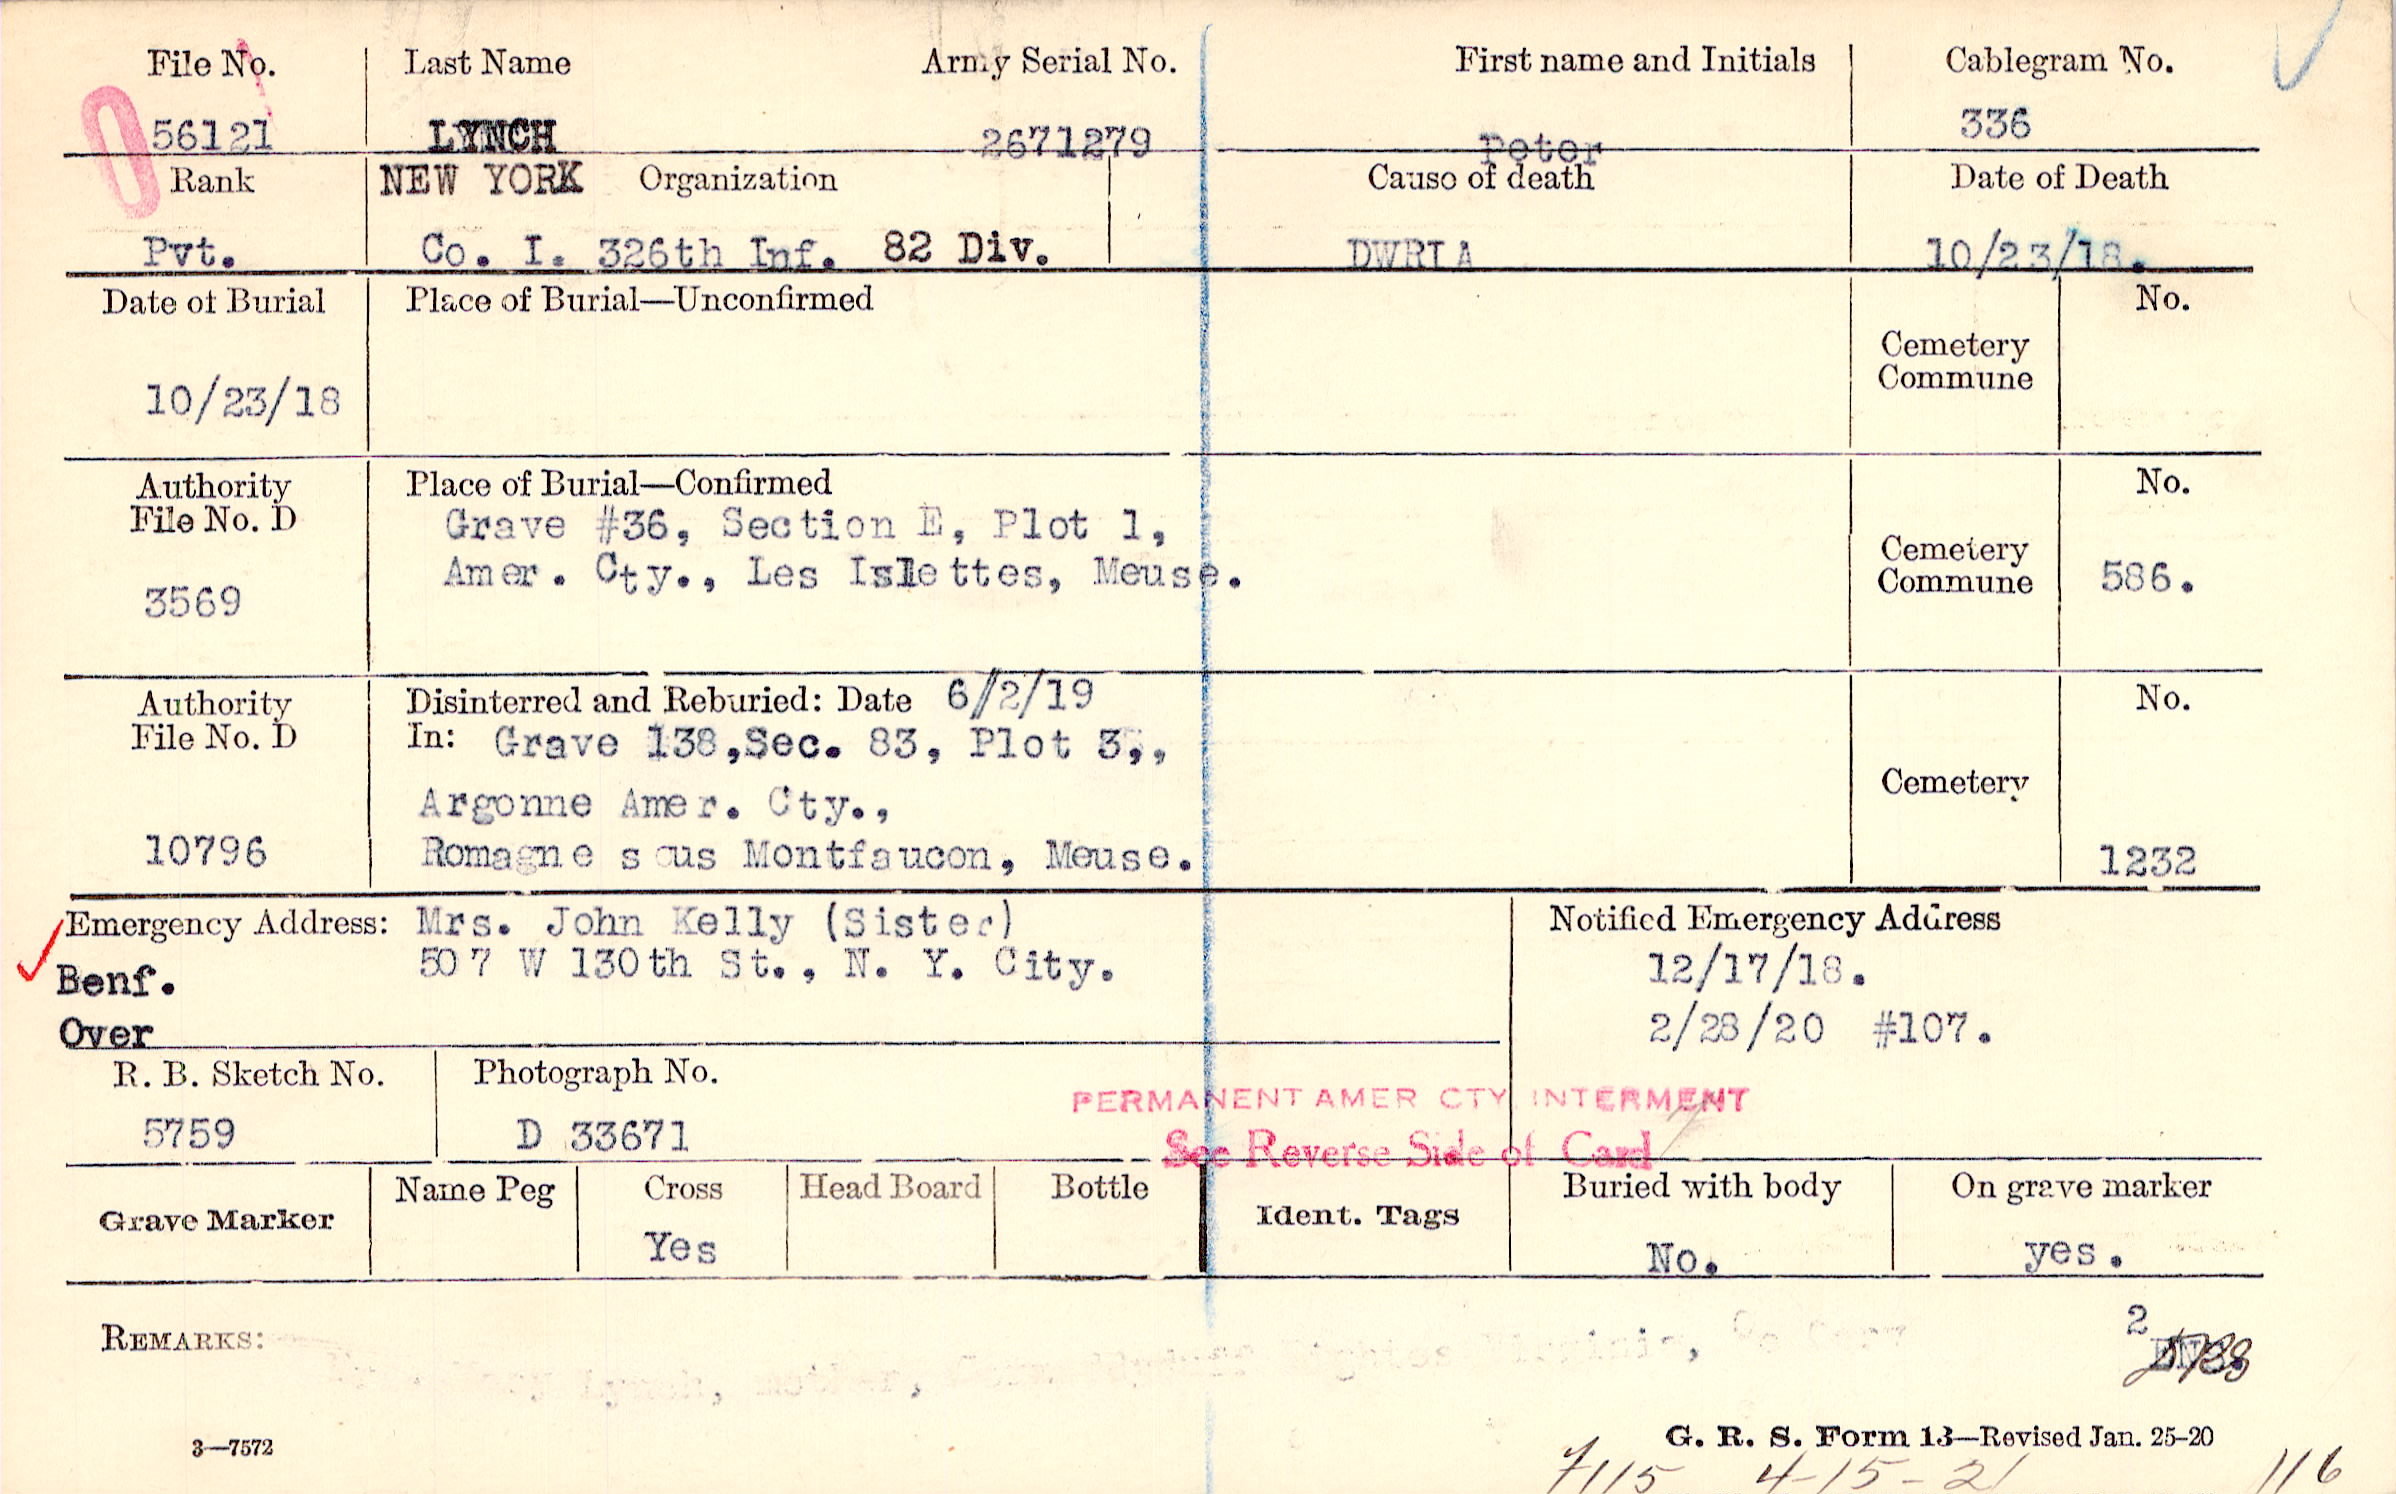 File No. Last Name Army Serial No. First name and Initials Cablegram No.
56121 LYNCH 2671279 Peter 336
Rank NEW YORK Organization Cause of death Date of Death
Pvt. Co. I. 326th Inf. 82 Div. DWRIA 10/23/18.
Date of Burial Place of Burial—Unconfirmed No.
Cemetery
Commune
10/23/18
Authority Place of Burial—Confirmed No.
File No. D Grave #36, Section E, Plot 1,
Amer. Cty., Les Islettes, Meuse. Cemetery
Commune 586.
3569
Authority Disinterred and Reburied: Date 6/2/19 No.
File No. D In: Grave 138, Sec. 83, Plot 3,,
Argonne Amer. Cty., Cemetery
10796 Romagne sous Montfaucon, Meuse. 1232
Emergency Address: Mrs. John Kelly (Sister) Notified Emergency Address
507 W 130th St., N. Y. City. 12/17/18.
Benf.
Over 2/28/20 #107.
R. B. Sketch No. Photograph No.
PERMANENT AMER CTY INTERMENT
5759 D 33671 See Reverse Side of Card
Grave Marker Name Peg Cross Head Board Bottle Ident. Tags Buried with body On grave marker
Yes No. yes.
2
REMARKS:
Lynch, mother,
3—7572 G. R. S. Form 13—Revised Jan. 25-20
7115 4-15-21 116